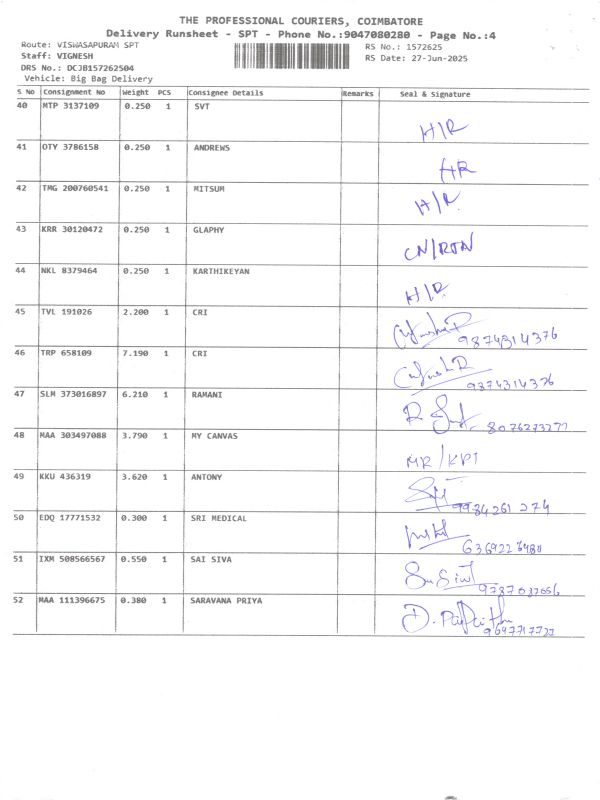 THE PROFESSIONAL COURIERS, COIMBATORE
Delivery Runsheet - SPT - Phone No.:9047080280 - Page No.:4
Route: VISWASAPURAM SPT RS No.: 1572625
Staff: VIGNESH RS Date: 27-Jun-2025
DRS No.: DCJB157262504
Vehicle: Big Bag Delivery
S No Consignment No Weight PCS Consignee Details Remarks Seal & Signature
40 MTP 3137109 0.250 1 SVT
H/R
41 OTY 3786158 0.250 1 ANDREWS
HR
42 TMG 200760541 0.250 1 MITSUM
H/R
43 KRR 30120472 0.250 1 GLAPHY
CN/RTN
44 NKL 8379464 0.250 1 KARTHIKEYAN
H/R
45 TVL 191026 2.200 1 CRI
9874314376
46 TRP 658109 7.190 1 CRI
9874314376
47 SLM 373016897 6.210 1 RAMANI
R
48 MAA 303497088 3.790 1 MY CANVAS
MR/KPT
49 KKU 436319 3.620 1 ANTONY
9984261274
50 EDQ 17771532 0.300 1 SRI MEDICAL
51 IXM 508566567 0.550 1 SAI SIVA
9787037056
52 MAA 111396675 0.380 1 SARAVANA PRIYA
D.
9697717727